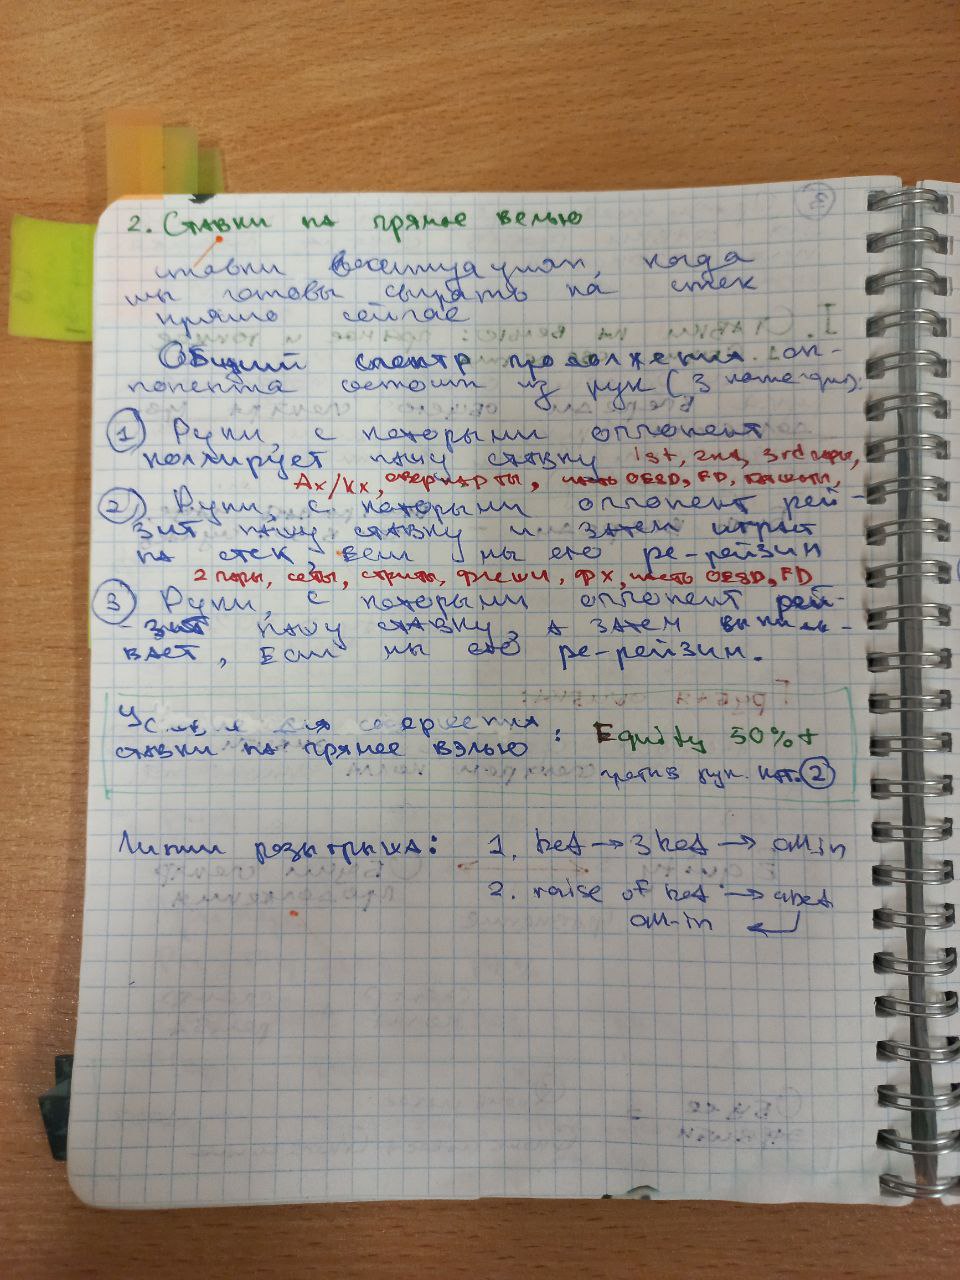 3
2. Ставки на прямое велью
ставки в ситуациях, когда
мы готовы сыграть на стек
прямо сейчас
Общий спектр продолжения оп-
понента состоит из рук (3 категории):
1 Руки, с которыми оппонент
коллирует нашу ставку 1st, 2nd, 3rd пары,
Ax/Kx, оверкарты, часть OESD, FD, гатшоты,
2 Руки, с которыми оппонент рей-
зит нашу ставку и затем играет
на стек, если мы его ре-рейзим
2 пары, сеты, стриты, флеши, ФХ, часть OESD, FD
3 Руки, с которыми оппонент рей-
-зит нашу ставку, а затем выкиды-
вает, если мы его ре-рейзим.
Условие для совершения
ставки на прямое вэлью: Equity 50%+
против рук кат. 2
Линии розыгрыша: 1. bet → 3bet → all-in
2. raise of bet → 4bet
all-in ←